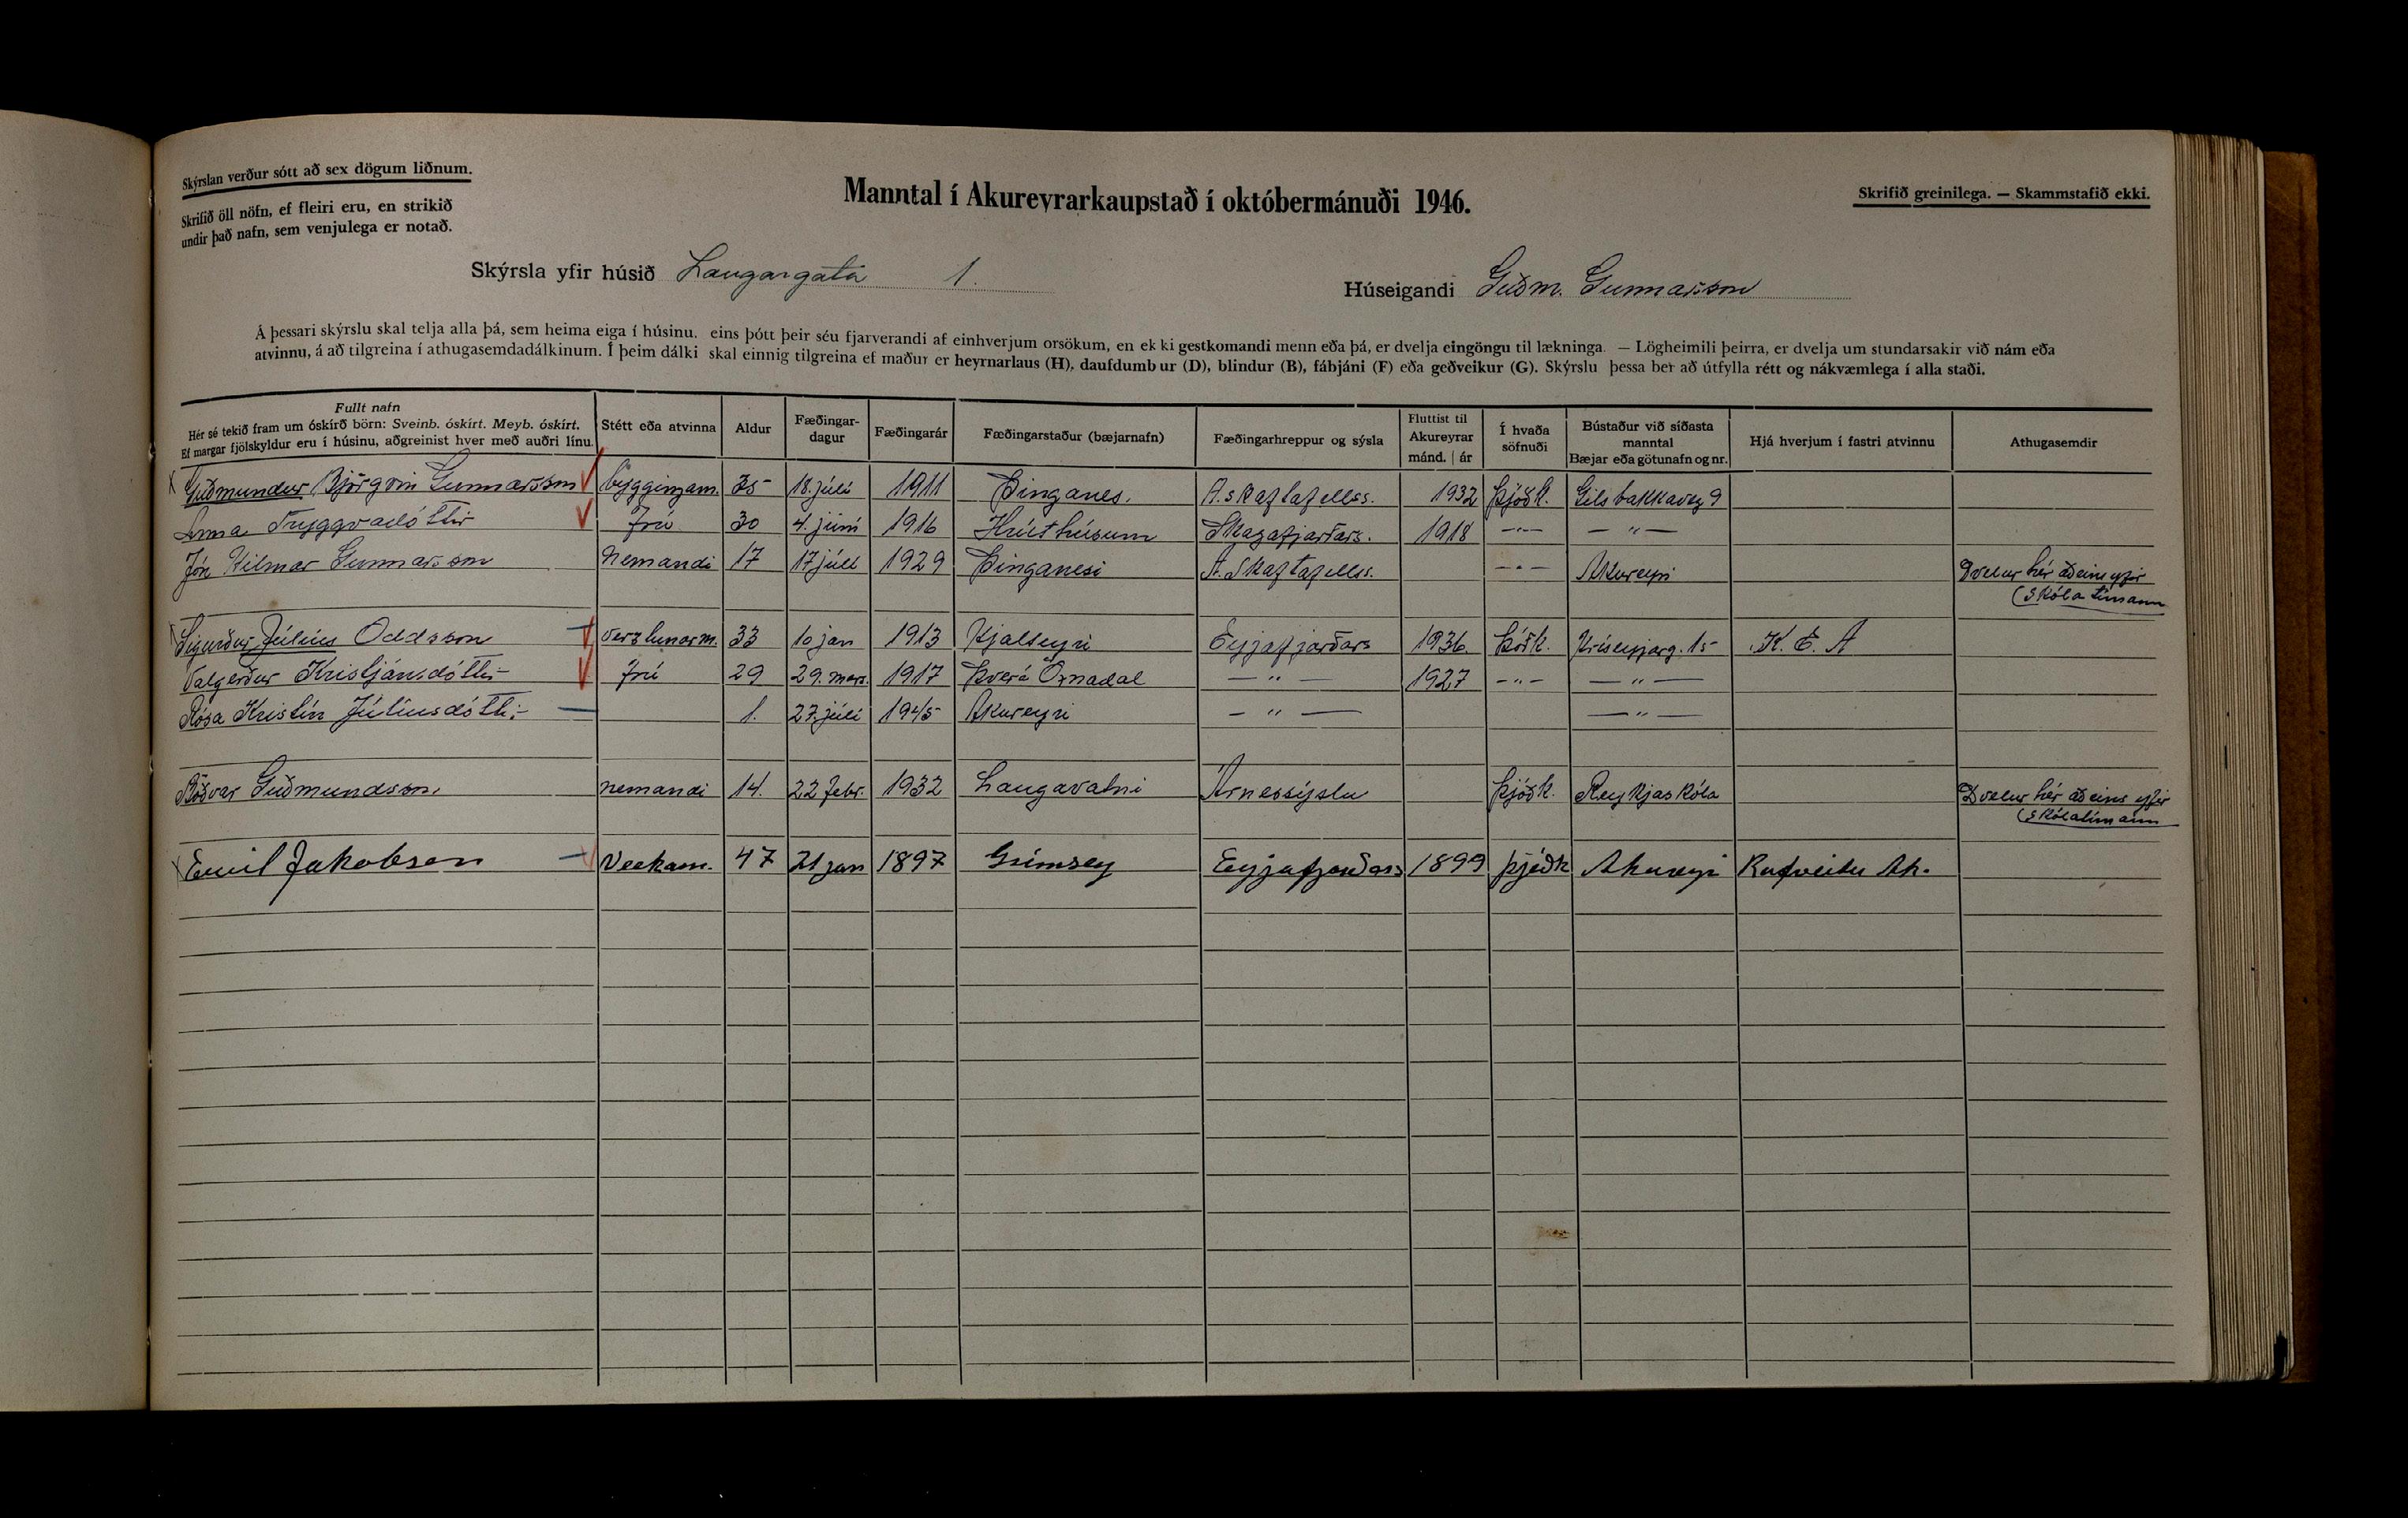 Skýrslan verður sótt að sex dögum liðnum.
Skrifið öll nöfn, ef fleiri eru, en strikið
undir það nafn, sem venjulega er notað.
Manntal í Akureyrarkaupstað í októbermánuði 1946.
Skrifið greinilega. — Skammstafið ekki.
Skýrsla yfir húsið Laugargata 1.
Húseigandi Guðm. Gunnarsson
Á þessari skýrslu skal telja alla þá, sem heima eiga í húsinu, eins þótt þeir séu fjarverandi af einhverjum orsökum, en ekki gestkomandi menn eða þá, er dvelja eingöngu til lækninga. — Lögheimili þeirra, er dvelja um stundarsakir við nám eða
atvinnu, á að tilgreina í athugasemdadálkinum. Í þeim dálki skal einnig tilgreina ef maður er heyrnarlaus (H), daufdumbur (D), blindur (B), fábjáni (F) eða geðveikur (G). Skýrslu þessa ber að útfylla rétt og nákvæmlega í alla staði.
Fullt nafn Hér sé tekið fram um óskírð börn: Sveinb. óskírt. Meyb. óskírt. Ef margar fjölskyldur eru í húsinu, aðgreinist hver með auðri línu. Stétt eða atvinna Aldur Fæðingar-dagur Fæðingarár Fæðingarstaður (bæjarnafn) Fæðingarhreppur og sýsla Fluttist til Akureyrar mánd. | ár Í hvaða söfnuði Bústaður við síðasta manntal Bæjar eða götunafn og nr. Hjá hverjum í fastri atvinnu Athugasemdir
Guðmundur Björgvin Gunnarsson byggingam. 35 18. júlí 1911 Þinganes. A. Skaftafellss. 1932 Þjóðk. Gilsbakkaveg 9
Anna Tryggvadóttir frú 30 4. júní 1916 Hrúthúsum Skagafjarðars. 1918 —"— —"—
Jón Hilmar Gunnarsson Nemandi 17 17 júlí 1929 Þinganesi A. Skaftafellss. —"— Akureyri Dvelur hér aðeins yfir
(skólatímann
Sigurður Júlíus Oddsson verzlunarm. 33 10 jan 1913 Hjalteyri Eyjafjarðars 1936. Þjóðk. Kríseyjarg. 15 K. E. A
Valgerður Kristjánsdóttir frú 29 29. mars. 1917 Þverá Öxnadal —"— 1927 —"— —"—
Rósa Kristín Júlíusdóttir 1. 27 júlí 1945 Akureyri —"— —"—
Böðvar Guðmundsson. nemandi 14. 22 febr. 1932 Laugavatni Árnessýslu Þjóðk. Reykjaskóla Dvelur hér aðeins yfir
(skólatímann
Emil Jakobsen Verkam. 47 21 jan 1897 Grímsey Eyjafjarðars 1899 Þjóðk Akureyri Rafveitu Ak.